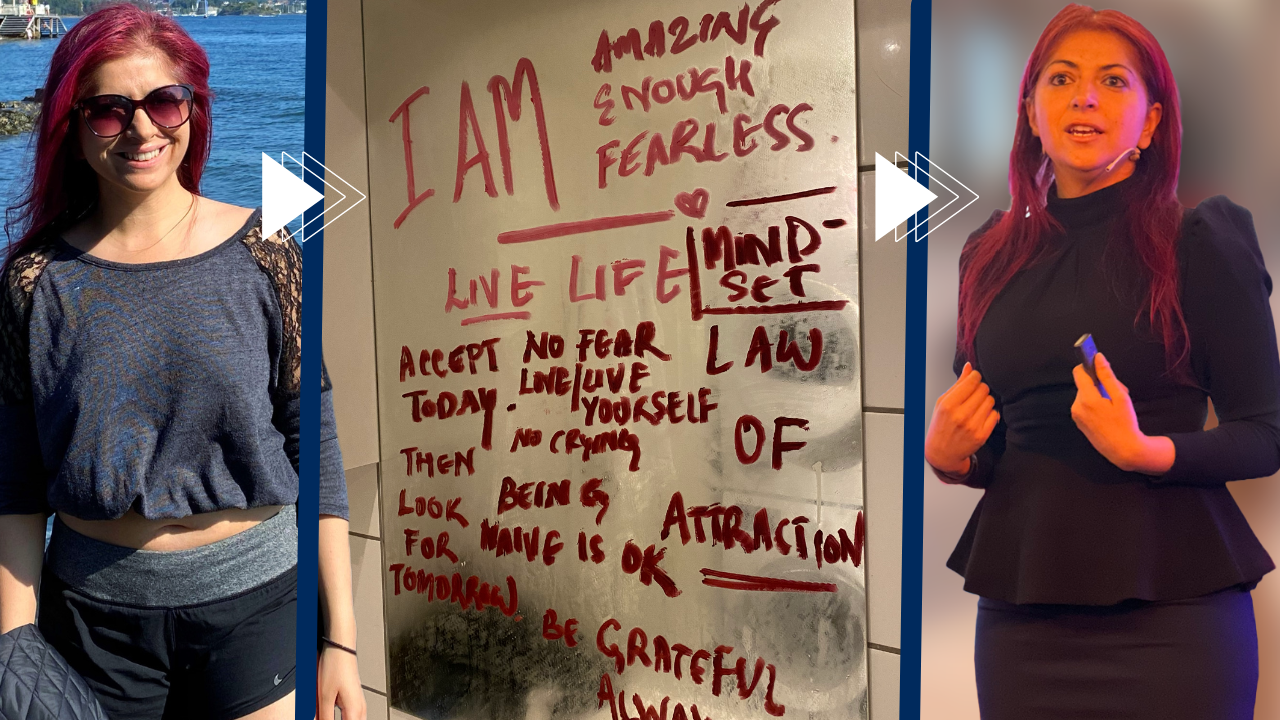 I AM
AMAZING
ENOUGH
FEARLESS.
LIVE LIFE
MIND-
SET
ACCEPT
TODAY.
THEN
LOOK
FOR
TOMORROW.
NO FEAR
LOVE/LIVE
YOURSELF
NO CRYING
BEING
NAIVE IS OK
LAW
OF
ATTRACTION
BE GRATEFUL